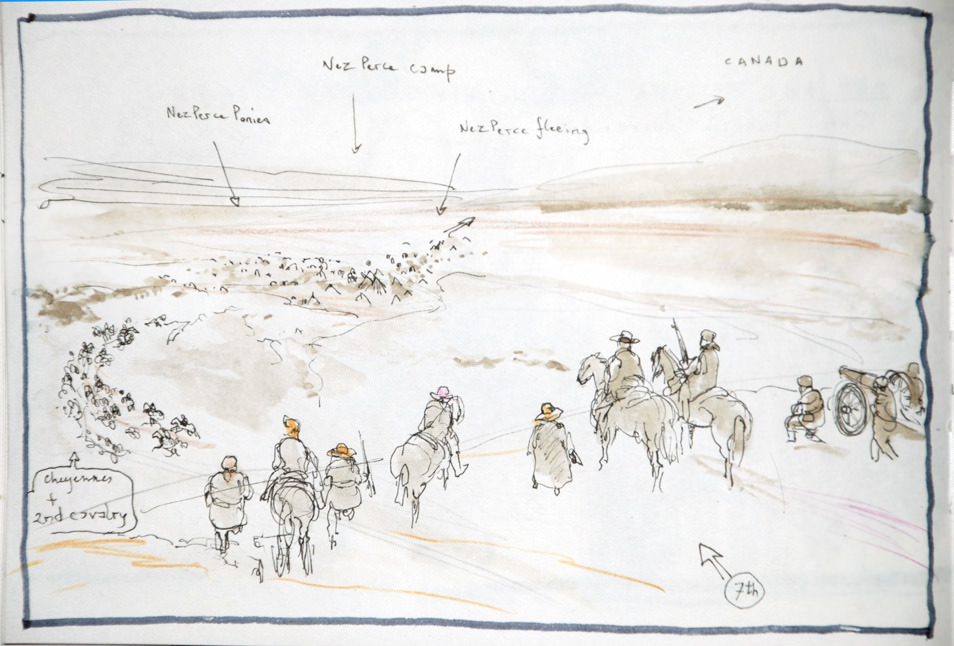 Nez Perce camp
CANADA
Nez Perce Ponies
Nez Perce fleeing
Cheyennes
+
2nd cavalry
7th